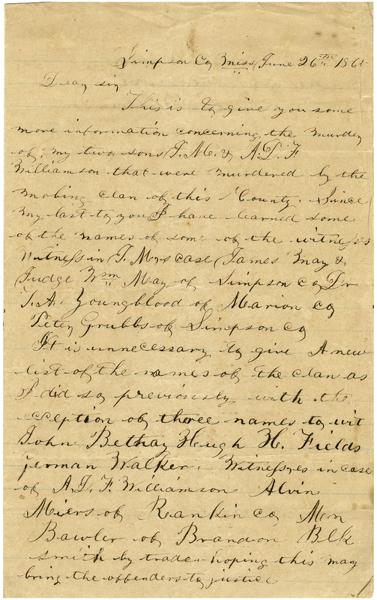 Simpson Co Miss, June 26th 186
Dear sir
This is to give you some
more information concerning the murder
of my two sons T. M. & A. D. F
Williamson that were murdered by the
mobing clan of this County. Since
my last to you I have learned some
of the names of som of the witness
Witness in T. M,s case James May &
Judge Wm May of Simpson co Dr
T. A. Youngblood of Marion co
Peter Grubbs of Simpson co
It is unnecessary to give A new
list of the names of the clan as
I did so previously with the
exception of three names to wit
John Bethay Hugh H. Fields
jerman Walker. Witnesses in case
of A. D. F. Williamson Alvin
Miers of Rankin co Mm
Bawler of Brandon Blk
smith by trade hoping this may
bring the offenders to justice